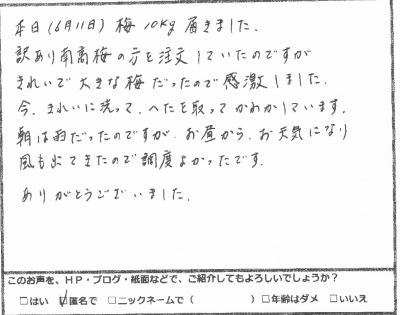 本日(6月11日)梅10kg届きました.
訳あり南高梅の方を注文していたのですが
きれいで大きな梅だったので感激しました.
今、きれいに洗って、へたを取ってかわかしています.
朝は雨だったのですが、お昼から、お天気になり
風も出てきたので調度よかったです.
ありがとうございました.
このお声を、HP・ブログ・紙面などで、ご紹介してもよろしいでしょうか?
□はい ☑匿名で □ニックネームで( ) □年齢はダメ □いいえ